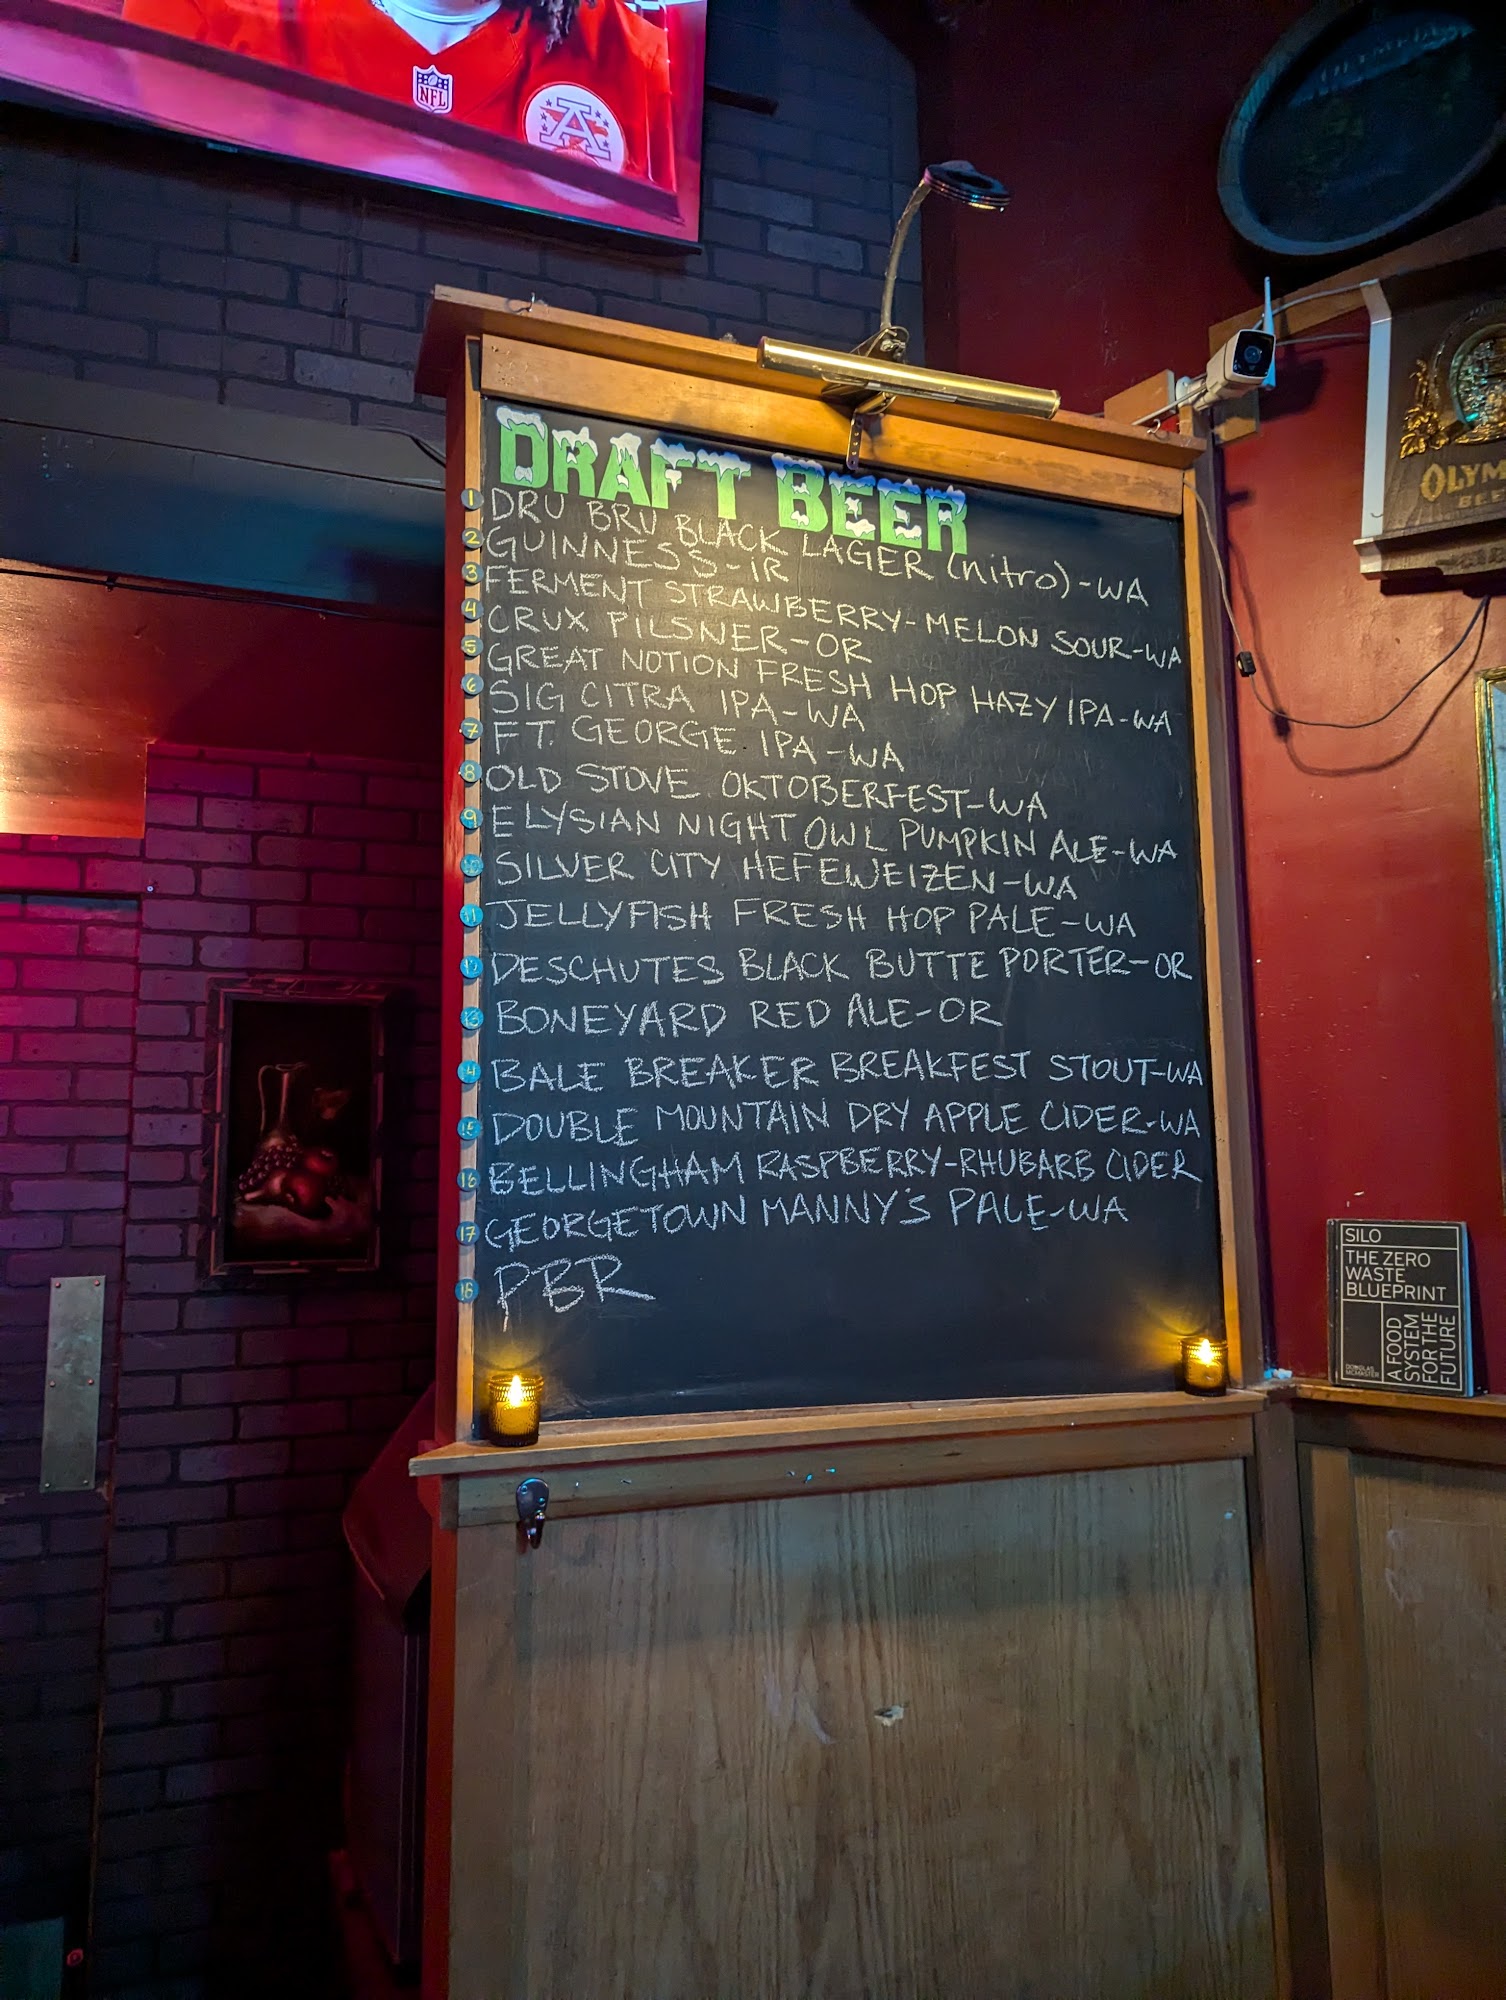 NFL
A
OLYMPIA
DRAFT BEER
1 DRU BRU BLACK LAGER (nitro)-WA
2 GUINNESS-IR
3 FERMENT STRAWBERRY-MELON SOUR-WA
4 CRUX PILSNER-OR
5 GREAT NOTION FRESH HOP HAZY IPA-WA
6 SIG CITRA IPA-WA
7 FT. GEORGE IPA-WA
8 OLD STOVE OKTOBERFEST-WA
9 ELYSIAN NIGHT OWL PUMPKIN ALE-WA
10 SILVER CITY HEFEWEIZEN-WA
11 JELLYFISH FRESH HOP PALE-WA
12 DESCHUTES BLACK BUTTE PORTER-OR
13 BONEYARD RED ALE-OR
14 BALE BREAKER BREAKFEST STOUT-WA
15 DOUBLE MOUNTAIN DRY APPLE CIDER-WA
16 BELLINGHAM RASPBERRY-RHUBARB CIDER
17 GEORGETOWN MANNY'S PALE-WA
18 PBR
OLYM
BEE
SILO
THE ZERO
WASTE
BLUEPRINT
A FOOD
SYSTEM
FOR THE
FUTURE
DOUGLAS
MCMASTER